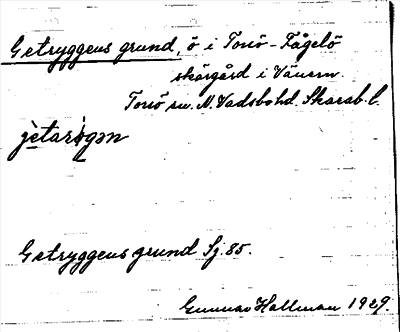 Getryggens grund, ö i Torsö-Fågelö
skärgård i Vänern.
Torsö sn. N. Vadsbo hd. Skarab. l.
jetarigən
Getryggens grund Sj. 85.
Gunnar Hallman 1929.